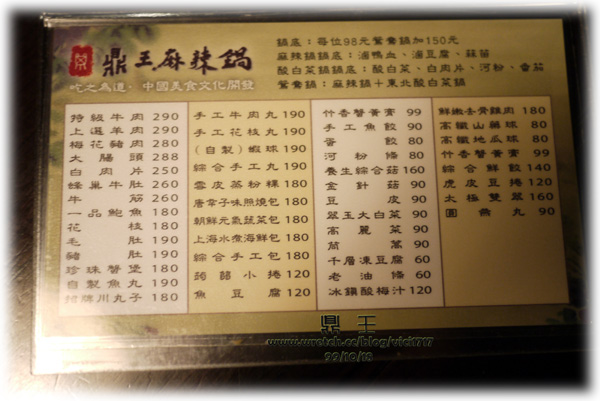 鼎王麻辣鍋
吃之為道‧中國美食文化開發
鍋底：每位98元鴛鴦鍋加150元
麻辣鍋鍋底：滷鴨血、滷豆腐、蒜苗
酸白菜鍋鍋底：酸白菜、白肉片、河粉、番茄
鴛鴦鍋：麻辣鍋＋東北酸白菜鍋
特級牛肉 290
上選羊肉 290
梅花豬肉 280
大腸頭 288
白肉片 250
蜂巢牛肚 260
牛筋 260
一品鮑魚 180
花枝 180
毛肚 190
豬肚 190
珍珠蟹堡 180
自製魚丸 190
招牌川丸子 180
手工牛肉丸 190
手工花枝丸 190
(自製)蝦球 190
綜合手工丸 190
雪皮蒸粉粿 180
唐拿子味燃燒包 180
朝鮮元氣蔬菜包 180
上海水煮海鮮包 180
綜合手工包 180
蒟蒻小捲 120
魚豆腐 120
竹香蟹黃膏 99
手工魚餃 90
蛋餃 80
河粉條 80
養生綜合菇 160
金針菇 90
豆皮 90
翠玉大白菜 90
高麗菜 90
茼蒿 90
千層凍豆腐 60
老油條 60
冰鎮酸梅汁 120
鮮嫩去骨雞肉 180
高纖山藥球 80
高纖地瓜球 80
竹香蟹膏膏 99
綜合鮮餃 140
虎皮豆捲 120
太極雙翠 160
圓燕丸 90
鼎 王
www.wretch.cc/blog/vich717
99/10/18